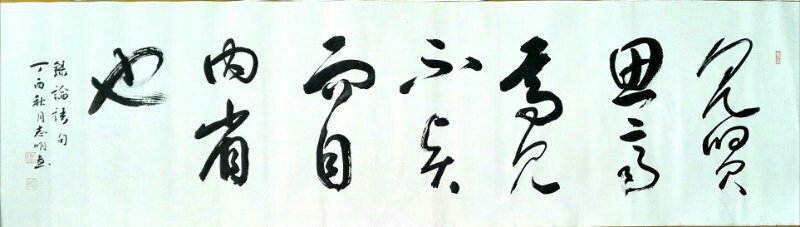 見賢
思齊
焉見
不賢
而自
内省
也
錄論語句
丁酉秋月志明書